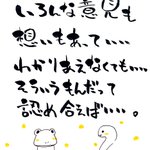 いろんな意見も
想いもあって・・・・
わかりあえなくても・・・・
そういうもんだって
認め合えれば・・・・。